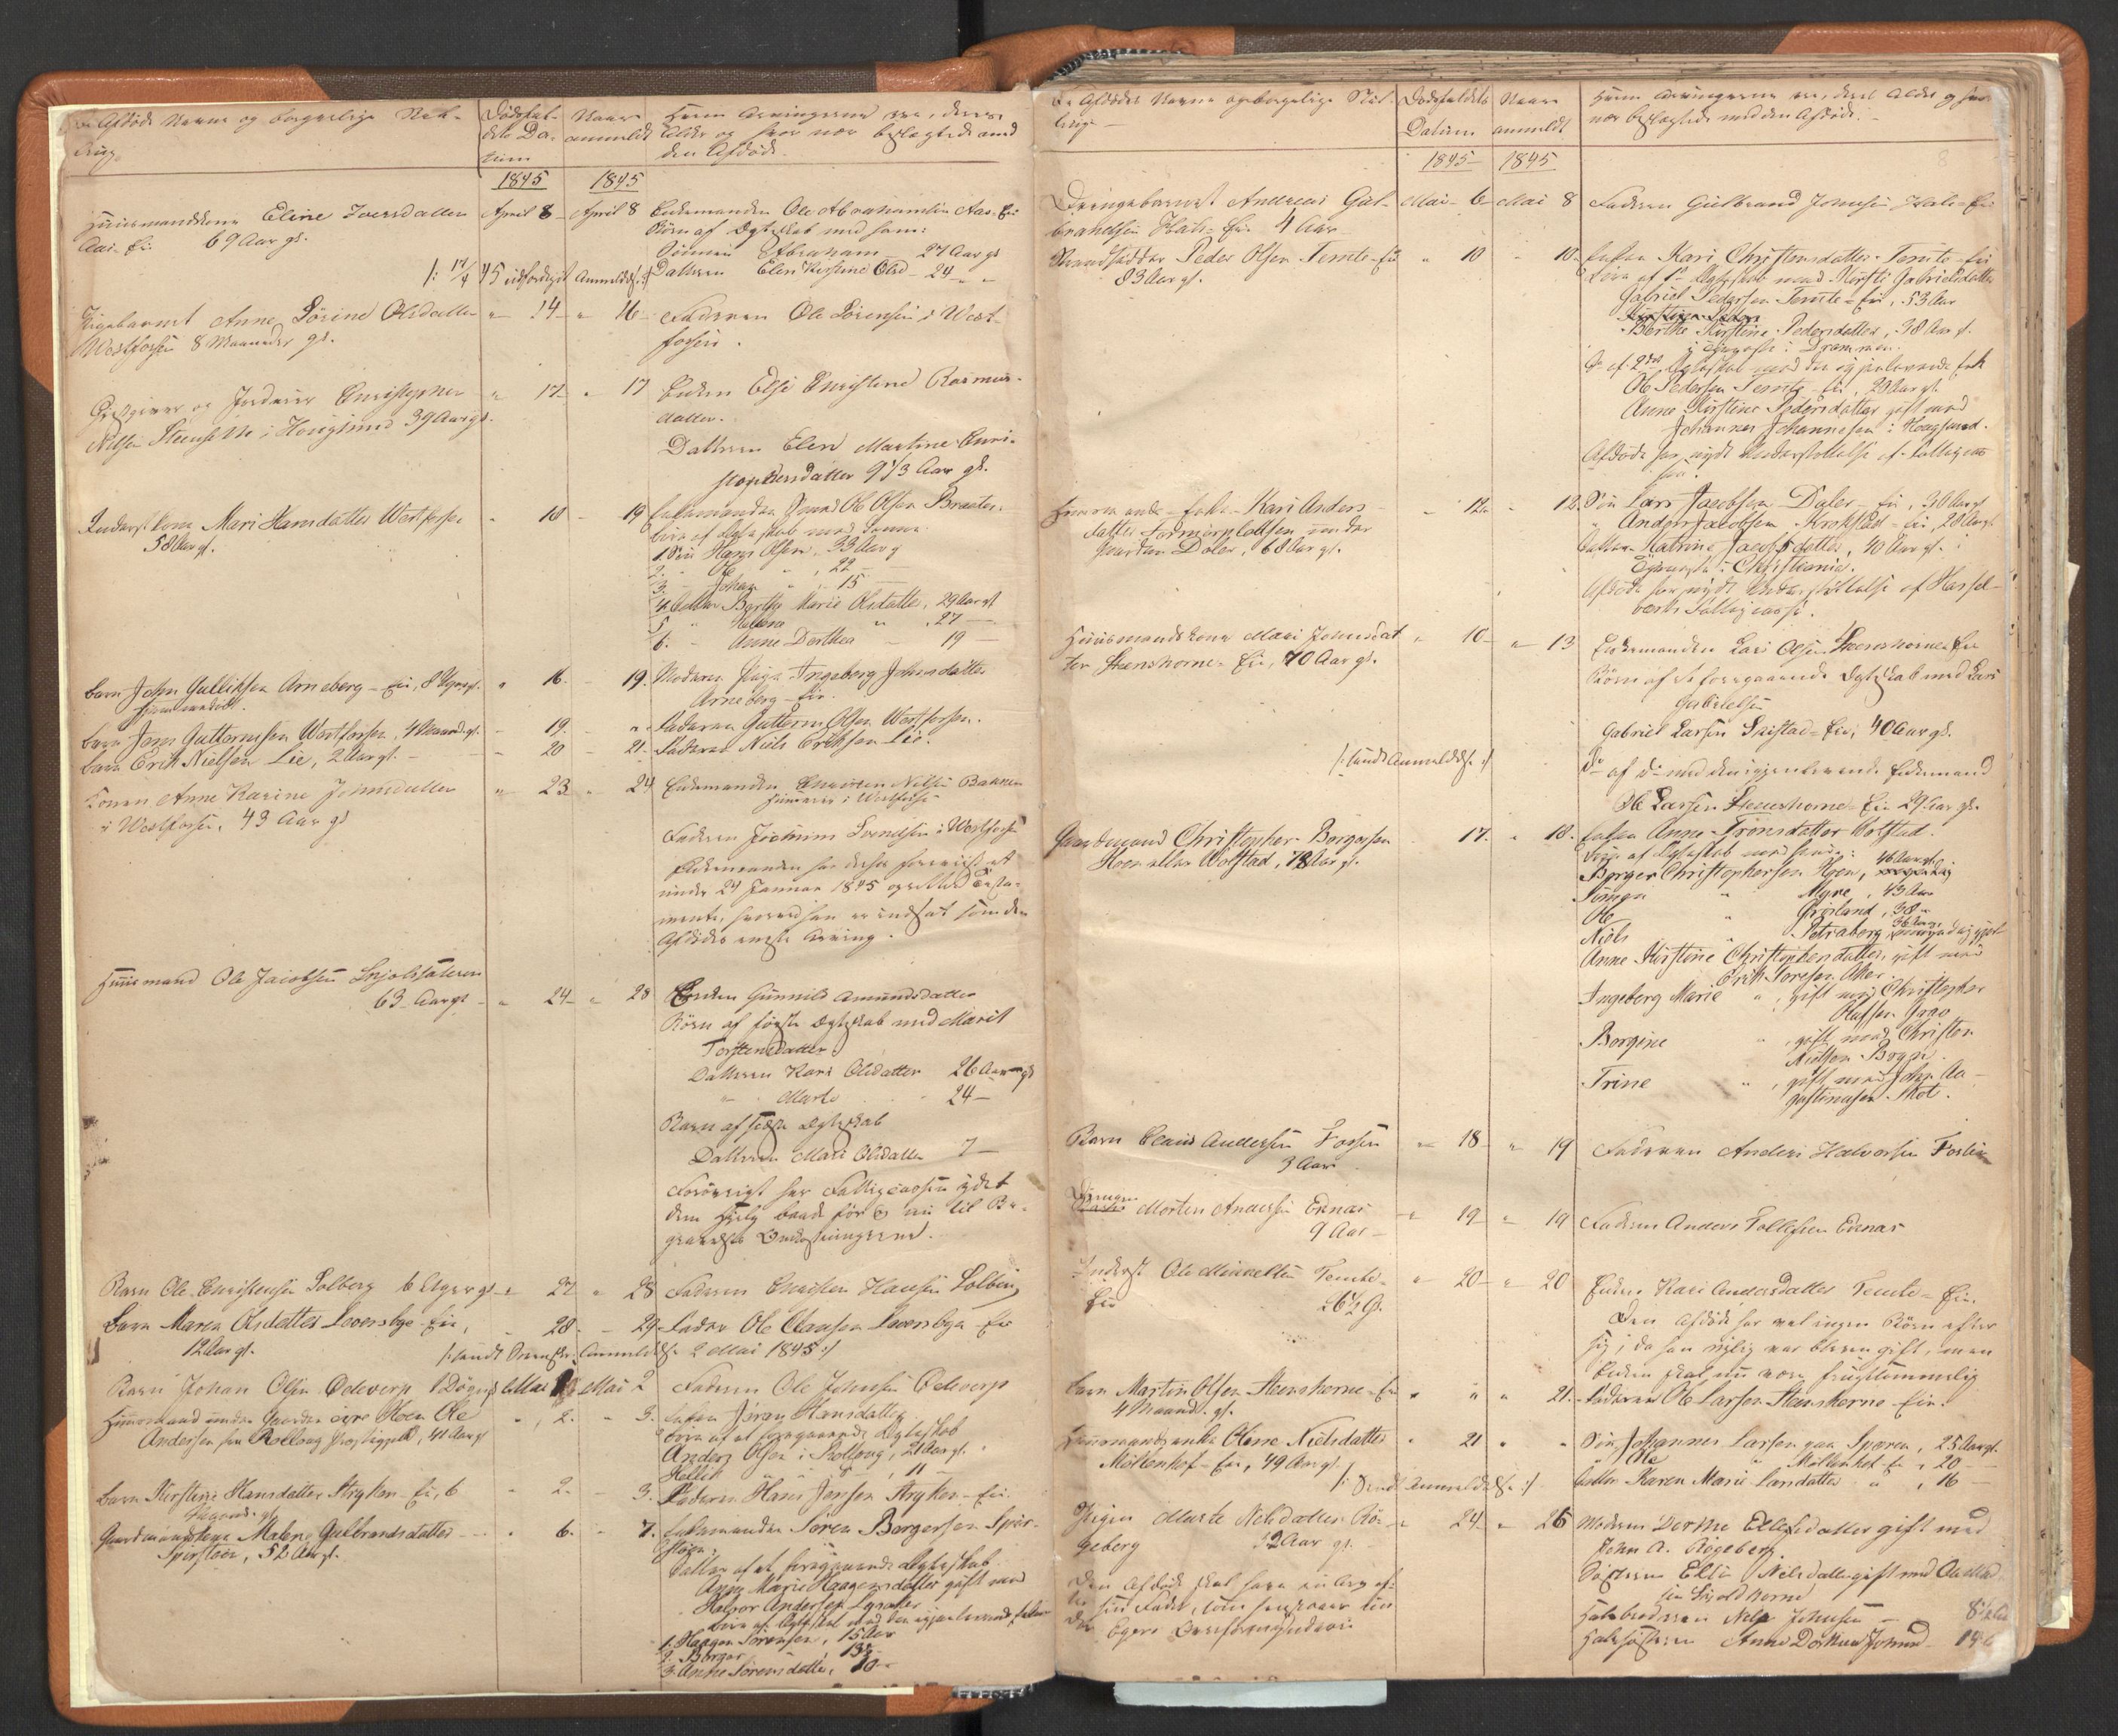 De Afdødes Navne og borgerlige Stil-
ling
Dødsfal-
dets Da-
tum
Naar
anmeldt
Hvem Arvingerne ere, deres
Alder og hvor nær beslægtede med
den Afdøde
1845
1845
Huusmandskone Eline Iversdatter
Aas-Eie 69 Aar gl.
April 8 April 8
Enkemanden Ole Abrahamsen Aas-Eie
Børn af Ægteskab med ham:
Sønnen Abraham 27 Aar gl
Datteren Elen Kirstine Olsd 24
/: 17/4 45 udfærdiget Anmeldelse :/
Pigebarnet Anne Sørine Olsdatter
Westfossen 8 Maaneder gl.
" 14 " 16
Faderen Ole Sørensen i Vest-
fossen.
Gjestgiver og Jordeier Christopher
Nilsen Steensætte i Hougsund 39 Aar gl.
" 17 " 17
Enken Else Christine Rasmus-
datter.
Datteren Elen Martine Chri-
stophersdatter 9 1/3 Aar gl.
Inderst Kone Mari Hansdatter Westfossen
58 Aar gl.
" 18 - 19
Enkemanden Ole Olsen Braaten.
Børn af Ægteskab med denne
1 Søn Hans Olsen, 33 Aar gl
2. Ole " , 22 -
3. Johan " , 15 -
4. Datter Berthe Marie Olsdatter, 29 Aar gl
5 " Helena " , 27 -
6. - Anne Dorthea - 19 -
Barn John Gulliksen Arneberg-Eie, 8 Uger gl.
" 16. - 19.
Moderen Pige Ingeborg Johnsdatter
Arneberg-Eie.
Barn Jens Guttormsen Westfossen, 4 Maand. gl.
- 19. "
Faderen Guttorm Olsen Westfossen.
Barn Erik Nielsen Lie, 2 Aar gl.
- 20 - 21.
Faderen Niels Eriksen Lie.
Konen Anne Karine Johnsdatter
i Westfossen, 43 Aar gl
" 23 " 24
Enkemanden Christen Nilsen Bakken
Huuseier i Westfossen
Faderen Jochum Svendsen i Westfossen
Enkemanden har derhos foreviist et
under 24 Januar 1845 oprettet Testa-
mente, hvorved han er indsat som den
Afdødes eneste Arving.
Huusmand Ole Jacobsen Snjolisæteren
63 Aar gl
" 24 " 28
Enken Gunnild Amundsdatter
Børn af første Ægteskab med Marit
Torstensdatter
Datteren Kari Olsdatter 26 Aar gl
" Marte 24 -
Barn af sidste Ægteskab
Datteren Mari Olsdatter 7 -
Forøvrigt har Fattigcassen ydet
dem Hjelp baade før og nu til Be-
gravelses Omkostningerne.
Barn Ole Christensen Solberg 6 Uger gl
" 27 " 28
Faderen Christen Hansen Solberg
Barn Maren Olsdatter Lovensbye-Eie,
12 Aar gl.
28. - 29.
Fader Ole Clausen Lovensbye-Eie
/: sendt Anmeldelse 2 Mai 1845 :/
Barn Johan Olsen Oedeverp, 1 Døgn gl
Mai 1 Mai 2
Faderen Ole Johnsen Oedeverp
Huusmand under Gaarden øvre Hoen Ole
Andersen fra Rollaug Præstegjeld, 41 Aar gl
" 2. " 3.
Enken Jøran Hansdatter
Børn af et foregaaende Ægteskab
Anders Olsen i Rollaug, 21 Aar gl.
Kettil " " , 11 -
Barn Kirstine Hansdatter Stryken-Eie, 6
Maand. gl.
" 2. - 3.
Faderen Hans Jensen Stryken-Eie.
Gaardmandskone Malene Gulbrandsdatter
Spersteen, 52 Aar gl.
" 6. - 7.
Enkemanden Søren Borgersen Sper-
steen.
Datter af et foregaaende Ægteskab
Anne Marie Haagensdatter gift med
Halvor Andersen Lysaker
Børn af Ægteskab med den igjenlevende Enkem
1. Haagen Sørensen, 15 Aar
2. Borger " , 13½
3. Anne Sørensdatter, 10 -
De Afdødes Navne og borgerlige Stil-
ling
Dødsfaldets
Datum
Naar
anmeldt
Hvem Arvingerne ere, deres Alder og hvor
nær beslægtede med den Afdøde.
8
1845
1845
Drengebarnet Andreas Gul-
brandsen Hals-Eie 4 Aar
Mai 6 Mai 8
Faderen Gulbrand Johnsen Hals-Eie
Peder Olsen Temte-Eie
83 Aar gl.
" 10 - 10.
Enken Kari Christensdatter Temte-Eie
Børn af 1ste Ægteskab med Kirsti Gabrielsdatter
Gabriel Pedersen Temte-Eie, 53 Aar
Berthe Kirstine Pedersdatter, 38 Aar gl.
i Tjeneste i Drammen.
Do af 2det Ægteskab med den igjenlevende Enk
Ole Pedersen Temte-Eie, 29 Aar gl.
Anne Kirstine Pedersdatter gift med
Johannes Johannesen i Hougsund.
Afdøde har nydt Understøttelse af Fattigcas-
sen.
Huusmands-Enke Kari Anders-
datter under
Gaarden Daler, 68 Aar gl.
" 12. " 12.
Søn Lars Jacobsen Daler-Eie, 30 Aar gl
" Anders Jacobsen Krokstad-Eie, 28 Aar gl.
Datter Katrine Jacobsdatter, 40 Aar gl. i
Tjeneste i Christiania.
Afdøde har nydt Understøttelse af Hassel-
værks Fattigcasse.
Huusmandskone Mari Johnsdat
ter Steenshorne-Eie, 70 Aar gl.
" 10 - " 13
Enkemanden Lars Olsen Steenshorne-Eie
Børn af et foregaaende Ægteskab med Lars
Gabrielsen
Gabriel Larsen Skistad-Eie, 40 Aar gl.
/: sendt Anmeldelse :/
Do af do med den igjenlevende Enkemand
Ole Larsen Steenshorne-Eie 29 Aar gl.
Gaardmand Christopher Borgersen
Hoen eller Wolstad, 78 Aar gl.
17. " 18.
Enken Anne Tronsdatter Wolstad.
Børn af Ægteskab med hende:
Borger Christophersen Hoen, 46 Aar gl.
Simen " Myre, 43 Aar
Ole " Grøsland, 38 "
Niels " Petraborg 36 Aar
Anne Kirstine Christophersdatter, gift med
Erik Toresen Aker
Ingeborg Marie " , gift med Christopher
Olafsen Grav
Borgine " , gift med Christen
Nielsen Borge.
Trine " , gift med John Au-
gustinusen Skot.
Barn Claus Andersen Fossen
3 Aar
" 18 - " 19
Faderen Anders Halvorsen Fossen
Drengen
Morten Andersen Eknæs
9 Aar
" 19 " 19
Faderen Anders Tollefsen Eknæs
Inderst Ole Mikkelsen Temte-
Eie 26½ gl.
" 20 - " 20
Enken Kari Andersdatter Temte-Eie.
Den Afdøde har vel ingen Børn efter
sig, da han nylig var bleven gift, men
Enken skal nu være frugtsommelig
Barn Martin Olsen Steenshorne-Eie
4 Maand. gl.
" " " 21.
Faderen Ole Larsen Steenshorne-Eie.
Huusmandsenke Olene Nielsdatter
Møllenhof-Eie, 49 Aar gl.
" 21 " "
Søn Johannes Larsen paa Sperren, 25 Aar gl.
" Ole " Møllenhof-Eie, 20 -
Datter Karen Marie Larsdatter " , 16 -
/: Sendt Anmeldelse :/
Pigen Marte Nilsdatter Rø-
geberg 12 Aar gl.
" 24 " 26
Moderen Dorthe Ellefsdatter gift med
John A. Røgeberg
Søsteren Elli Nilsdatter gift med
Halvbroderen Nils Johnsen - 8½
Halvsøsteren Anne Dorthea Johnsd
Den Afdøde skal have en Arv ef-
ter sin Fader, som forvares under
Eger Overformynderi